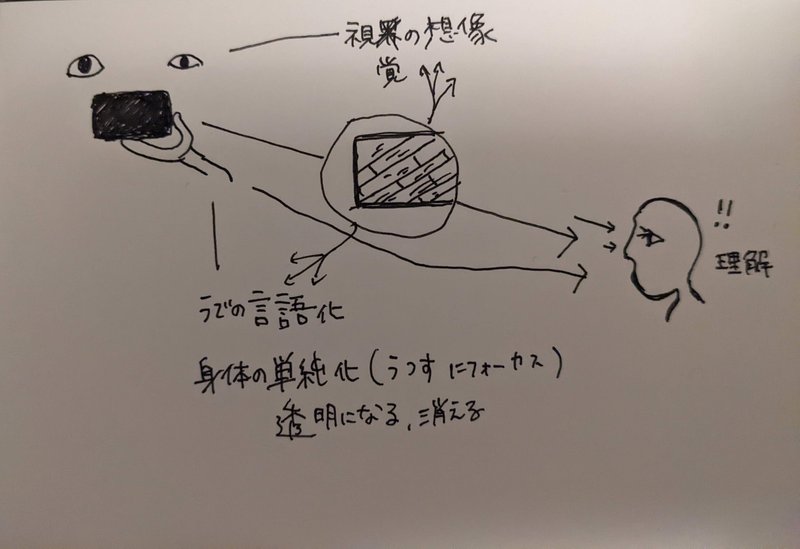 視界の想像
覚
!!
理解
うでの言語化
身体の単純化(うつすにフォーカス)
透明になる、消える